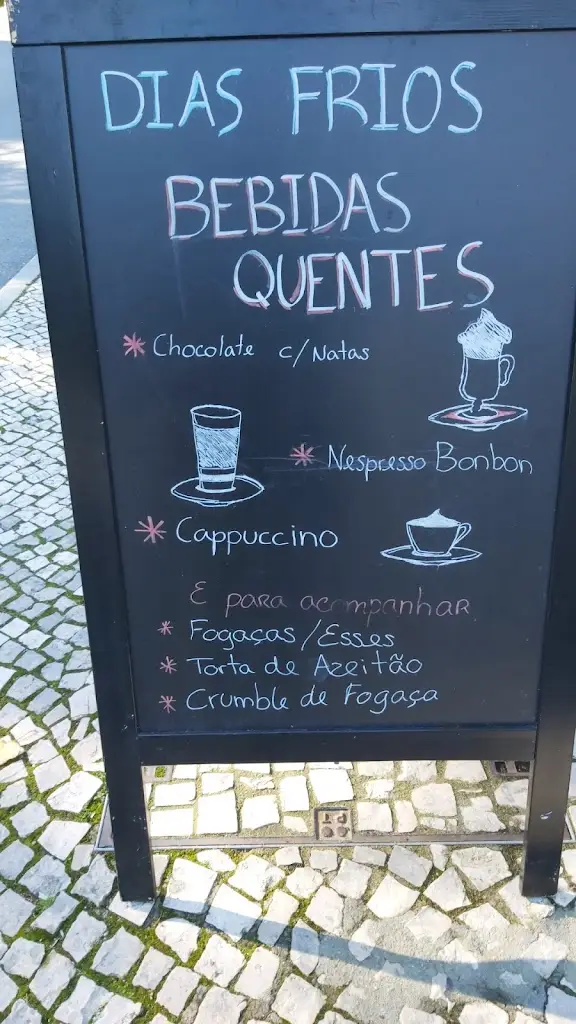 DIAS FRIOS
BEBIDAS
QUENTES
* Chocolate c/Natas
* Nespresso Bonbon
* Cappuccino
E para acompanhar
* Fogaças/Esses
* Torta de Azeitão
* Crumble de Fogaça